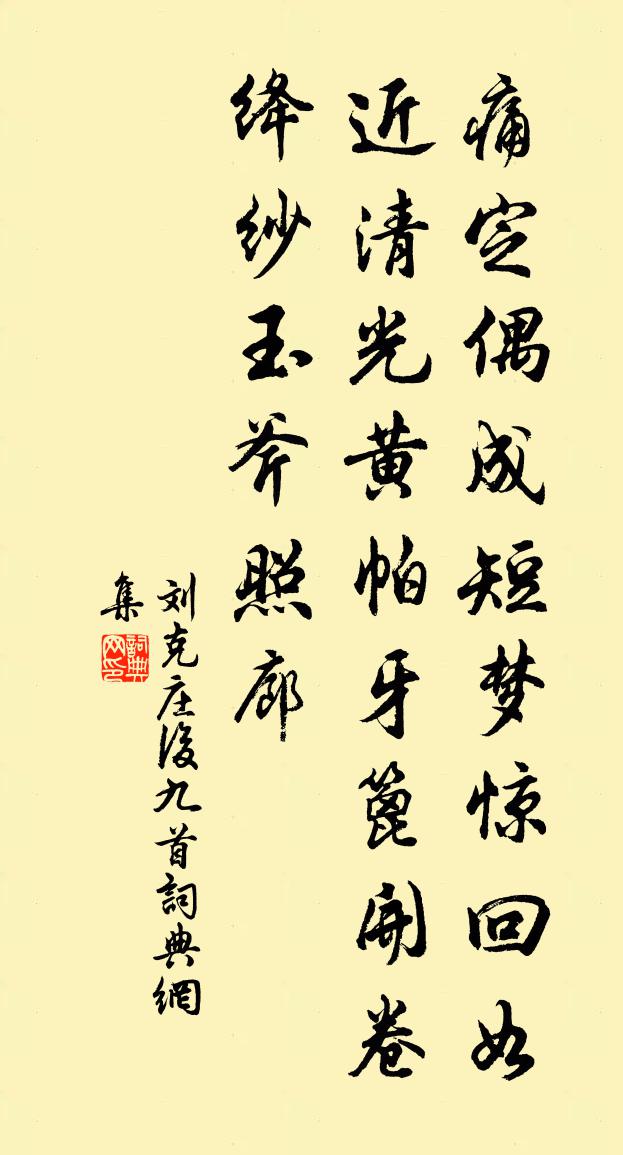 痛定偶成短梦惊回如
近清光黄帕牙篦开卷
绛纱玉斧照廊
刘克庄後九首詞典網
集
詞典
网印